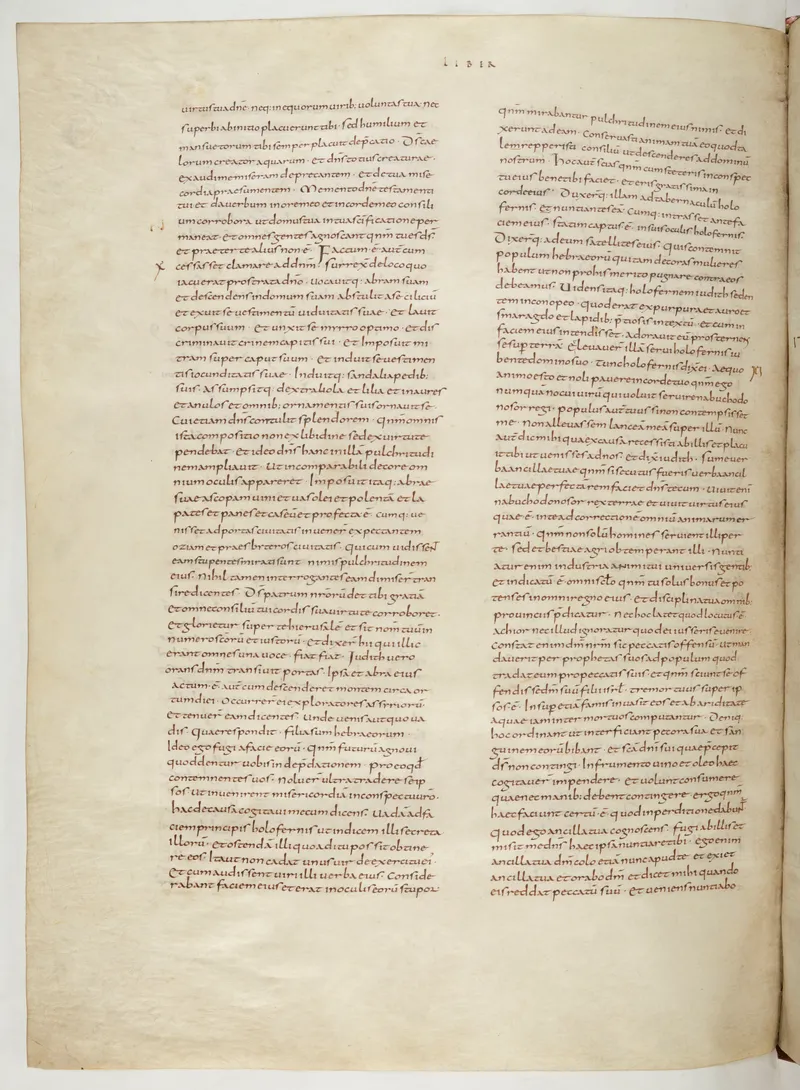 LIBER
uirtus tua dne · neq; in equorum uirib; uoluntas tua · nec
superbi ab initio placuerunt tibi · sed humilium et
mansuetorum tibi semper placuit depcatio · Ds cae
lorum creator aquarum · et dns totius creaturae ·
exaudi me miseram deprecantem · et de tua mise
cordia praesumentem · Memento dne testamenti
tui et da uerbum in ore meo et in corde meo consili
um corrobora ut domus tua in tua scificatione per
maneat · et omnes gentes agnoscant qnm tu es ds
et praeter te alius non e · Factum e aut cum
cessasset clamare ad dnm · surrex de loco quo
iacuerat prostrata dno · Uocauitq; abram suam
et descendens in domum suam abstulit a se ciliciu
et exuit se uestimentu uiduitatis suae · Et lauit
corpus suum · Et unxit se mirro optimo · et dis
criminauit crinem capitis sui · et Imposuit mi
tram super caput suum · Et induit se uestimen
tis iocunditatis suae · Induitq; sandalia pedib;
suis · Assumpsitq; dextraliola et lilia et inaures
et anulos et omnib; ornamentis suis ornauit se ·
Cui etiam dns contulit splendorem · qnm omnis
ista compositio non ex libidine sed ex uirtute
pendebat · Et ideo dns hanc in illa pulchritudi
nem ampliauit · Ut incomparabili decore om
nium oculis appareret · Imposuit itaq; abrae
suae ascopam uini et uas olei et polenta et la
pates et panes et caseu et profecta e · cumq; ue
nisset ad portas ciuitatis inuener expectantem
oziam et praesbiteros ciuitatis · qui cum uidissent
eam stupentes mirati sunt nimis pulchritudinem
eius · Nihil tamen interrogantes eam dimiser tran
sire dicentes · Ds patrum nroru det tibi gratia
et omne consiliu tui cordis sua uirtute corroboret ·
Et glorietur super te hierusale · et sit nom tuum
in numero scoru et iustoru · Et dixer hi qui illic
erant omnes una uoce · fiat fiat · Iudith uero
orans dnm transiuit portas · Ipsa et abra eius
Actum · e · aut cum descenderet montem circa or
tum diei · Occurrer ei exploratores assirioru ·
Et tenuer eam dicentes · Unde uenis aut quo ua
dis · Quae respondit · filia sum hebraeorum ·
Ideo ego fugi a facie eoru · qnm futuru agnoui
quod dentur uobis in depdationem · pro eo qd
contemnentes uos · noluer ultra tradere se ip
sos Ut inuenirent misericordia in conspectu uro ·
hac de causa cogitaui mecum dicens · Uada ad fa
ciem principis holofernis ut indicem illi secreta
illoru · et ostenda illi quo aditu possit obtine
re eos · Ita ut non cadat unus uir de exercitu ei ·
Et cum audissent uiri illi uerba eius · Conside
rabant faciem eius et erat in oculis eoru stupor
qnm mirabantur pulchritudinem eius nimis · Et di
xerunt ad eam · Conseruasti animam tua eo quod ta
lem repperisti consiliu ut descenderes ad dominu
nostrum · hoc aut scias qnm cum steteris in conspec
tu eius bene tibi faciet · et eris gratissima in
corde eius · Duxerq; illam ad tabernaculu holo
fernis et nuntiantes ea · Cumq; intrasset ante fa
ciem eius · statim captus e in suis oculis holofernis ·
Dixerq; ad eum satellites eius · quis contemnit
populum hebraeoru qui tam decoras mulieres
habent ut non pro his merito pugnare contra eos
debeamus · Uidens itaq; holofernem iudith seden
tem in conopeo · quod erat ex purpura et auro et
smaragdo et lapidib; ptiosis intextu · et cum in
faciem eius intendisset · Adorauit eu prosternens
se sup terra · Eleuauer illa serui holofernis iu
bente domino suo · Tunc holofernis dix ei · Aequo
animo esto et noli pauere in corde tuo qnm ego
numqua nocui uiru qui uoluit seruire nabuchodo
nosor regi · populus aut tuus si non contempsisset
me · non alleuassem lancea mea super illu · Nunc
aut dic mihi qua ex causa recessisti ab illis et placu
it tibi ut uenisses ad nos · et dix iudith · sume uer
ba ancillae tuae qnm si secutus fueris uerba ancil
lae tuae perfecta rem faciet dns tecum · Uiuit eni
nabuchodonosor rex terrae et uiuit uirtus eius
quae · e · in te ad correctione omniu animarum er
rantiu · qnm non solu homines seruient illi per
te · sed et bestiae agri obtemperant illi · Nunti
atur enim industria animi tui uniuersis gentib;
et indicatu · e · omi sclo qnm tu solus bonus et po
tens es in omni regno eius · et disciplina tua omnib;
prouinciis pdicatur · nec hoc latet quod locutus · e ·
achior nec illud ignoratur quod ei iusseris euenire ·
Constat enim dm nrm sic peccatis offensu · Ut man
dauerit per prophetas suos ad populum quod
tradat eum pro peccatis suis · et qnm sciunt se of
fendisse dm suu filii isrl · tremor tuus super ip
sos · e · Insup etia famis inuasit eos et ab ariditate
aquae iam inter mortuos computantur · Deniq;
hoc ordinant ut interficiant pecora sua · et san
guinem eoru bibant · et sca dni sui quae pcepit
ds non contingi · In frumento uino et oleo haec
cogitauer impendere · et uolunt consumere
quae nec manib; debent contingere · ergo qnm
haec faciunt certu · e · quod in perditione dabunt ·
Quod ego ancilla tua cognoscens · fugi ab illis et
misit me dns haec ipsa nuntiare tibi · ego enim
ancilla tua dm colo etia nunc apud te · et exiet
ancilla tua et orabo dm · et dicet mihi quando
eis reddat peccatu suu · et ueniens nuntiabo